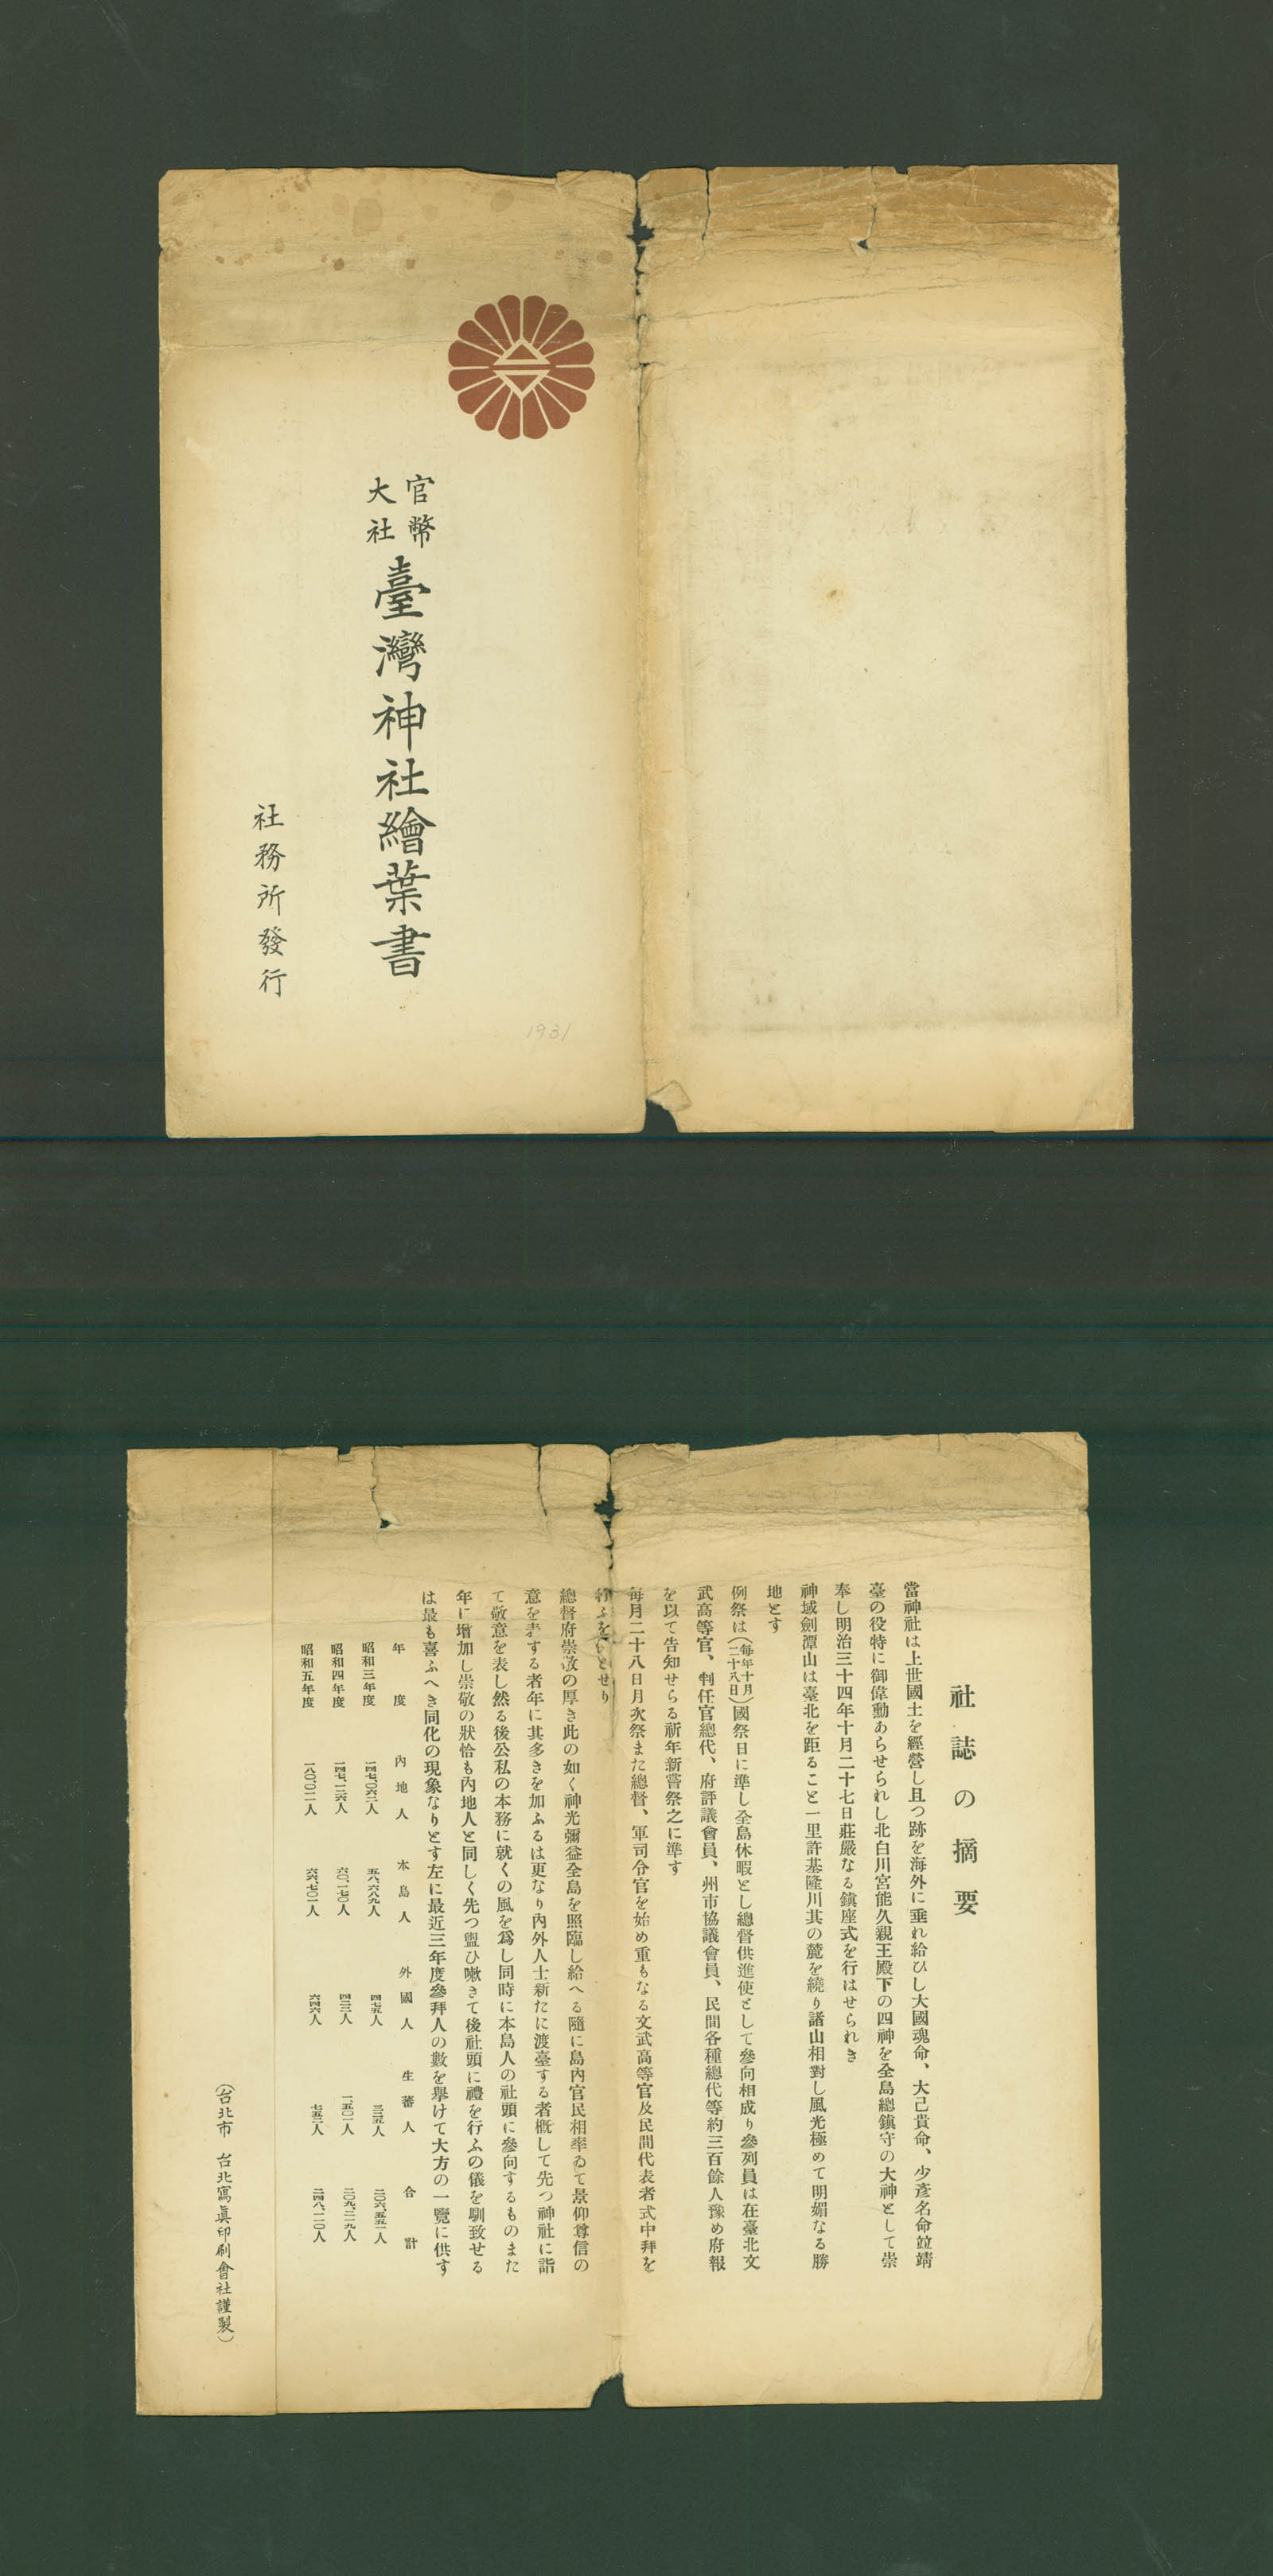 官幣
大社
臺灣神社繪葉書
社務所發行
1931
社誌の摘要
當神社は上世國土を經營し且つ跡を海外に垂れ給ひし大國魂命、大己貴命、少彥名命竝靖
臺の役特に御偉勳あらせられし北白川宮能久親王殿下の四神を全島總鎭守の大神として崇
奉し明治三十四年十月二十七日莊嚴なる鎭座式を行はせられき
神域劍潭山は臺北を距ること一里許基隆川其の麓を繞り諸山相對し風光極めて明媚なる勝
地とす
例祭は(每年十月二十八日)國祭日に準し全島休暇とし總督供進使として參向相成り參列員は在臺北文
武高等官、判任官總代、府評議會員、州市協議會員、民間各種總代等約三百餘人豫め府報
を以て告知せらる祈年新嘗祭之に準す
每月二十八日月次祭また總督、軍司令官を始め重もなる文武高等官及民間代表者式中拜を
行ふを とせり
總督府崇敬の厚き此の如く神光彌益全島を照臨し給へる隨に島內官民相率ゐて景仰尊信の
意を表する者年に其多きを加ふるは更なり內外人士新たに渡臺する者槪して先つ神社に詣
て敬意を表し然る後公私の本務に就くの風を爲し同時に本島人の社頭に參向するものまた
年に增加し崇敬の狀恰も內地人と同しく先つ盥ひ嗽きて後社頭に禮を行ふの儀を馴致せる
は最も喜ふへき同化の現象なりとす左に最近三年度參拜人の數を擧けて大方の一覽に供す
年度 內地人 本島人 外國人 生蕃人 合計
昭和三年度 一四七、〇六二人 五八、六八九人 四七五人 三二五人 二〇六、五五一人
昭和四年度 一四七、一二六人 六〇、一七〇人 四二二人 一、五〇一人 二〇九、二一九人
昭和五年度 一八〇、〇二一人 六六、七〇一人 六四六人 七五二人 二四八、一二〇人
(台北市 台北寫眞印刷會社謹製)